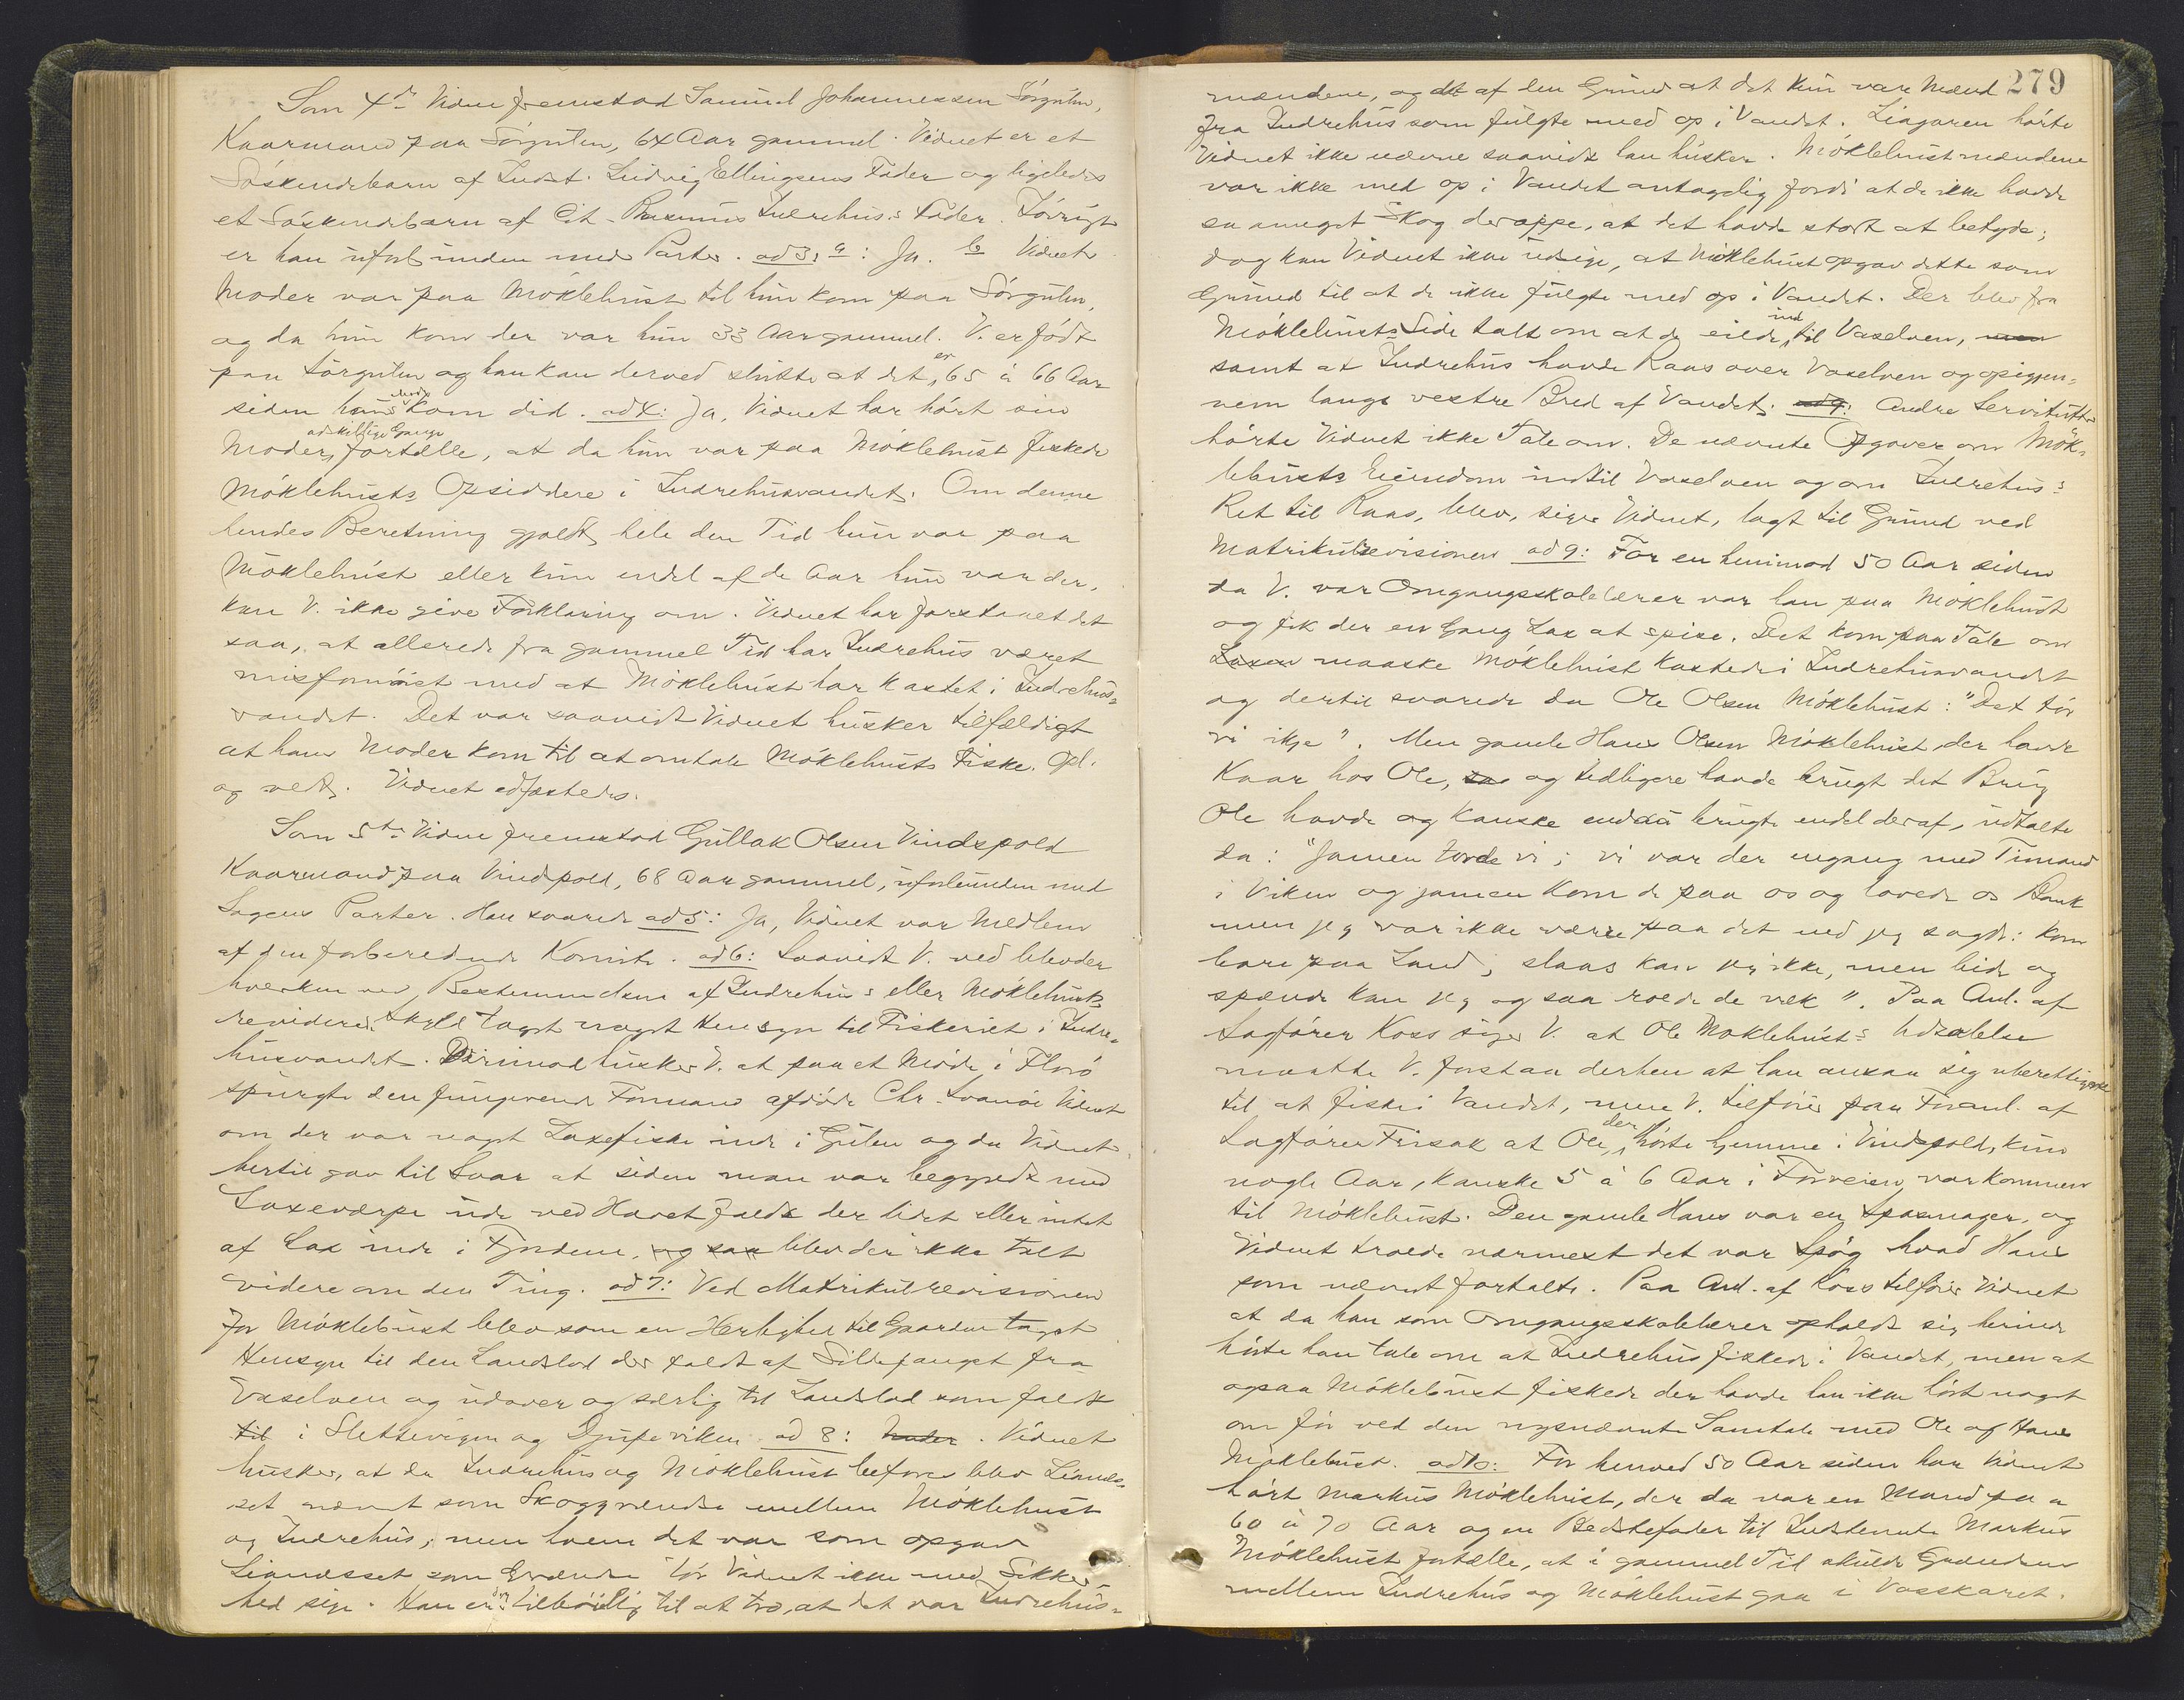 Som 4de Vidne fremstod Samuel Johannessen Sørgulen,
Kaarmand paa Sørgulen, 64 Aar gammel. Vidnet er et
Søskendebarn af Indst. Ludvig Ellingsens Fader og ligeledes
et Søskendebarn af Cit. Rasmus Indrehus's Fader. Iøvrigt
er han uforbunden med Parter. ad 3, a: Ja. b Vidnets
Moder var paa Møklebust til hun kom paa Sørgulen,
og da hun kom der var hun 33 Aar gammel. V. er født
paa Sørgulen og han kan derved slutte at det er 65 à 66 Aar
siden hans Moder kom did. ad 4: Ja, Vidnet har hørt sin
Moder adskillige Gange fortælle, at da hun var paa Møklebust fiskede
Møklebusts Opsiddere i Indrehusvandet. Om denne
hendes Beretning gjældt hele den Tid hun var paa
Møklebust eller kun endel af de Aar hun var der,
kan V. ikke give Forklaring om. Vidnet har forstaaet det
saa, at allerede fra gammel Tid har Indrehus været
misfornøiet med at Møklebust har kastet i Indrehus-
vandet. Det var saavidt Vidnet husker tilfældigt
at hans Moder kom til at omtale Møklebusts Fiske. Opl.
og vedt. Vidnet edfæstedes.
Som 5te Vidne fremstod Gullak Olsen Vindspold
Kaarmand paa Vindspold, 68 Aar gammel, uforbunden med
Sagens Parter. Han svarede ad 5: Ja, Vidnet var Medlem
af den forberedende Komite. ad 6: Saavidt V. ved blev der
hverken ved Bestemmelsen af Indrehus's eller Møklebusts
reviderede Skyld taget noget Hensyn til Fiskeriet i Indre-
husvandet. Derimod husker V. at paa et Møde i Florø
spurgte den fungerende Formand afdøde Chr. Svanøe Vidnet
om der var noget Laxefiske inde i Gulen og da Vidnet
hertil gav til Svar at siden man var begyndt med
Laxeværpe ude ved Havet faldt der lidet eller intet
af Lax inde i Fjordene, og saa blev der ikke talt
videre om den Ting. ad 7: Ved Matrikulrevisionen
for Møklebust blev som en Herlighed til Gaarden taget
Hensyn til den Landslod der faldt af Sildefanget fra
Vaselven og udover og særlig til Landslod som faldt
til i Slettevigen og Djupeviken. ad 8: . Vidnet
husker, at da Indrehus og Møklebust befares blev Lianes-
set nævnt som Skoggrændse mellem Møklebust
og Indrehus; men hvem det var som opgav
Lianesset som Grændse tør Vidnet ikke med Sikker-
hed sige. Han er dog tilbøielig til at tro, at det var Indrehus-
279
mændene, og det af den Grund at det kun var Mænd
fra Indrehus som fulgte med op i Vandet. Liagaren hørte
Vidnet ikke nævne saavidt han husker. Møklebustmændene
var ikke med op i Vandet antagelig fordi at de ikke havde
saa meget Skog deroppe, at det havde stort at betyde;
dog kan Vidnet ikke udsige, at Møklebust opgav dette som
Grund til at de ikke fulgte med op i Vandet. Der blev fra
Møklebusts Side talt om at de eiede ind til Vaselven, men
samt at Indrehus havde Raas over Vaselven og opigjen-
nem langs vestre Bred af Vandet. ad 9: Andre Servitutter
hørte Vidnet ikke Tale om. De nævnte Opgaver om Møk-
lebusts Eiendom indtil Vaselven og om Indrehus's
Ret til Raas, blev, siger Vidnet, lagt til Grund ved
Matrikulrevisionen. ad 9: For en henimod 50 Aar siden
da V. var Omgangsskolelærer var han paa Møklebust
og fik der en Gang Lax at spise. Det kom paa Tale om
Laxen maaske Møklebust kastede i Indrehusvandet
og dertil svarede da Ole Olsen Møklebust: "Det tør
vi ikje". Men gamle Hans Olsen Møklebust, der havde
Kaar hos Ole, og tidligere havde brugt det Brug
Ole havde og kanske endda brugte endel deraf, udtalte
da: "Jamen torde vi; vi var der engang med Timand
i Viken og jamen kom de paa os og lovede os Bank
men jeg var ikke værre paa det end jeg sagde: kom
bare paa Land; slaas kan jeg ikke, men bide og
spænde kan jeg og saa roede de væk". Paa Anl. af
Sagfører Koss siger V. at Ole Møklebust's Udtalelse
maatte V. forstaa derhen at han ansaa sig uberettiget
til at fiske i Vandet, men V. tilføier paa Foranl. af
Sagfører Frisak at Ole, der hørte hjemme i Vindspold, kun
nogle Aar, kanske 5 à 6 Aar i Forveien var kommen
til Møklebust. Den gamle Hans var en Spasmager, og
Vidnet troede nærmest det var Spøg hvad Hans
som nævnt fortalte. Paa Anl. af Koss tilføier Vidnet
at da han som Omgangsskolelærer opholdt sig herinde
hørte han tale om at Indrehus fiskede i Vandet, men at
ogsaa Møklebust fiskede der havde han ikke hørt noget
om før ved den nysnævnte Samtale med Ole og Hans
Møklebust. ad 10: For henved 50 Aar siden har Vidnet
hørt Markus Møklebust, der da var en Mand paa
60 à 70 Aar og en Bedstefader til Indstevnte Markus
Møklebust fortælle, at i gammel Tid skulde Grændsen
mellem Indrehus og Møklebust gaa i Vasskaret.